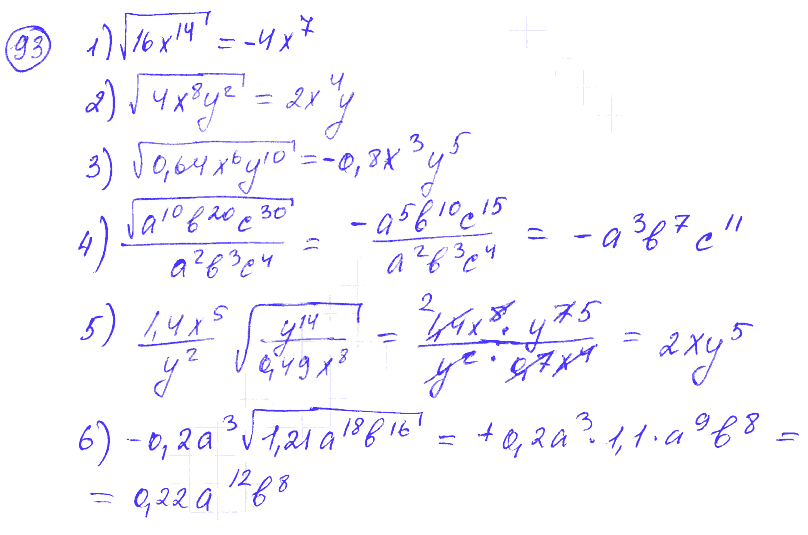 93
1) √(16x¹⁴) = -4x⁷
2) √(4x⁸y²) = 2x⁴y
3) √(0,64x⁶y¹⁰) = -0,8x³y⁵
4) √(a¹⁰b²⁰c³⁰) / (a²b³c⁴) = -a⁵b¹⁰c¹⁵ / (a²b³c⁴) = -a³b⁷c¹¹
5) 1,4x⁵ / y² √(y¹⁴ / (0,49x⁸)) = 2 1,4x⁵ · y⁷ 5 / (y² · 0,7x⁴) = 2xy⁵
6) -0,2a³√(1,21a¹⁸b¹⁶) = +0,2a³ · 1,1 · a⁹b⁸ =
= 0,22a¹²b⁸